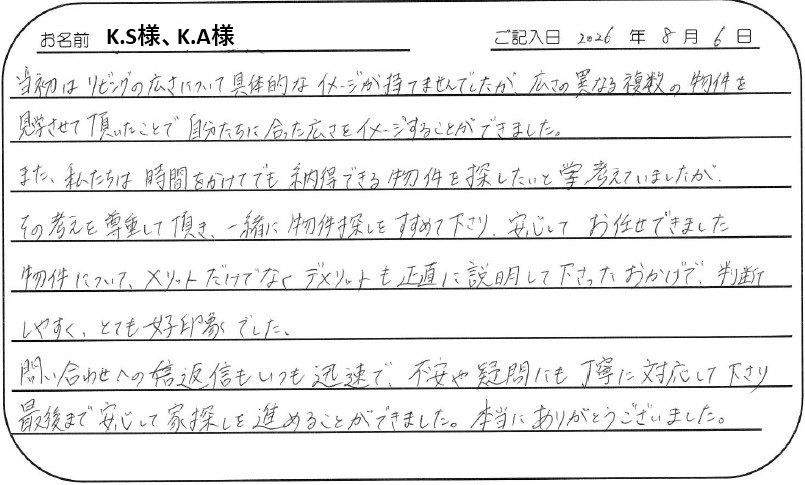 お名前 K.S様、K.A様 ご記入日 2026 年 8 月 6 日
当初はリビングの広さについて具体的なイメージが持てませんでしたが、広さの異なる複数の物件を
見学させて頂いたことで自分たちに合った広さをイメージすることができました。
また、私たちは時間をかけてでも納得できる物件を探したいと考えていましたが、
その考えを尊重して頂き、一緒に物件探しをすすめて下さり、安心してお任せできました
物件について、メリットだけでなくデメリットも正直に説明して下さったおかげで、判断
しやすく、とても好印象でした。
問い合わせへの返信もいつも迅速で、不安や疑問にも丁寧に対応して下さり
最後まで安心して家探しを進めることができました。本当にありがとうございました。